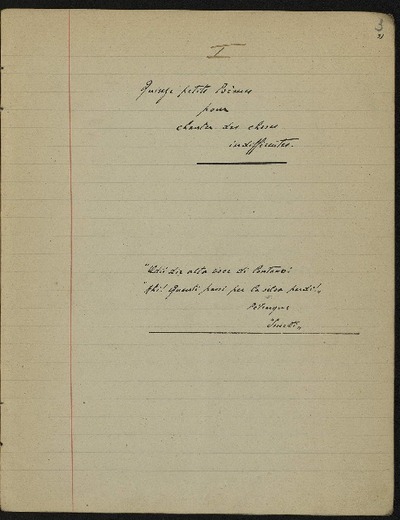 3
I
Quinze petits Poèmes
pour
chanter des choses
indifférentes.
"Udii dir alta voce di lontano:
"Ahi! Quanti passi per la selva perdi!"
Pétrarque